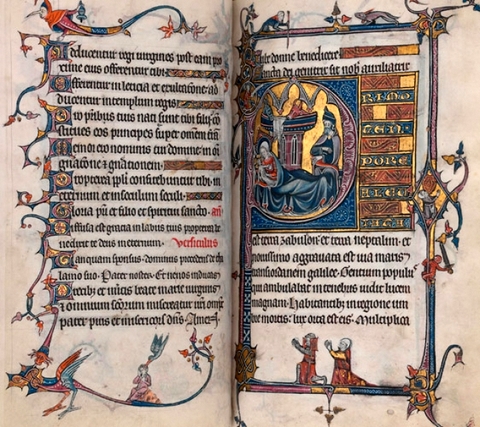 Adducentur regi uirgines post eam pro
xime eius offerentur tibi
Afferentur in leticia et exultacione ad
ducentur in templum regis
Pro patribus tuis nati sunt tibi filii con
stitues eos principes super omnem
Memor ero nominis tui domine in
gnacione & gnationem
Propterea ppli confitebuntur tibi in
eternum et in seculum seculi
Gloria patri et filio et spiritui sancto an
Diffusa est gracia in labiis tuis propterea be
nedixit te deus in eternum. Versiculus
Tanquam sponsus dominus procedens de tha
lamo suo. Pater noster. Et ne nos inducas
Precib; et meritis beate marie uirginis
et omnium sctorum misereatur nri omps
pater pius et misericors dns. Amen
Iube domne benedicere
Sancta dei genitrix sit nob auxiliatrix
PRIMO
TEM
PORE
ALLE
est terra zabulon et terra neptalim. et
nouissimo aggrauata est uia maris
transiordanem galilee. Gentium populus
qui ambulabat in tenebris uidit lucem
magnam. Habitantib; in regione um
bre mortis. lux orta est eis. Multiplica